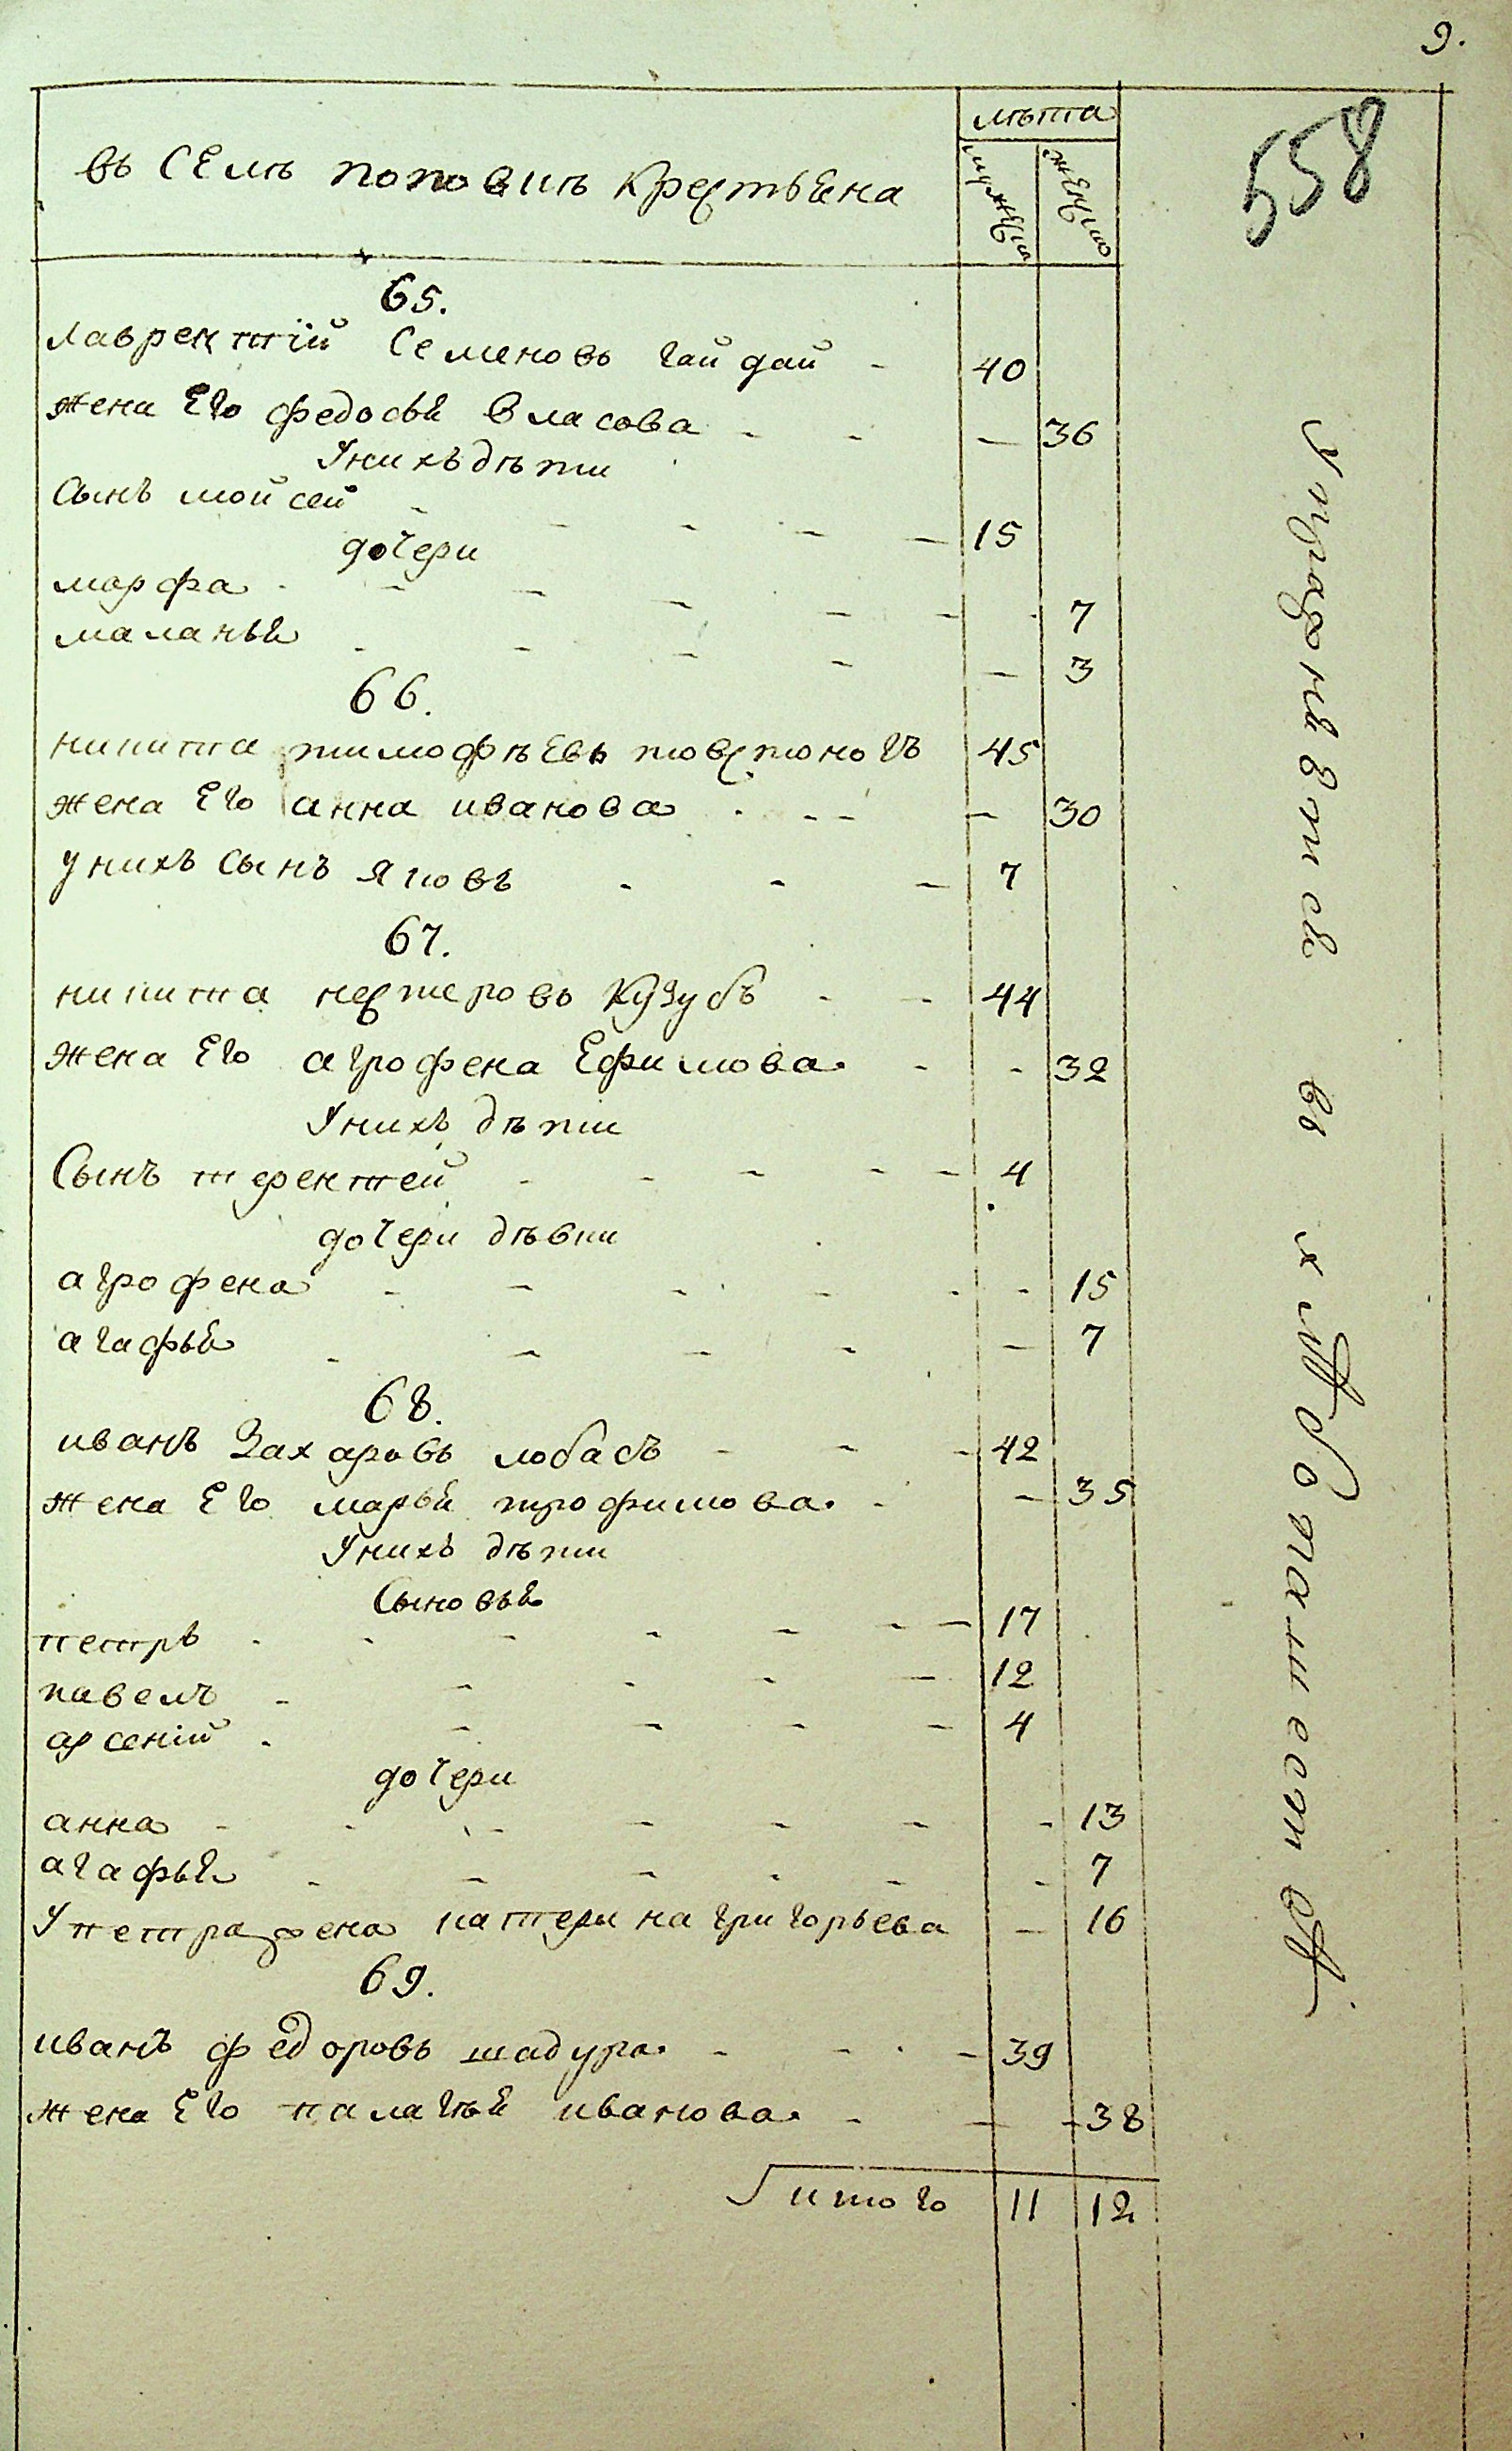 9.
558
въ Селѣ поповикѣ крестьяна
лѣта
мужеска
женско
65.
лаврентій Семеновъ гайдай - 40
жена Его федосья власова - - — 36
У нихъ дѣти
Сынъ мойсей - - - - — 15
дочери
марфа - - - - - - - 7
маланья - - - - — 3
66.
никита тимофѣевъ товстоногъ 45
жена Его анна иванова - - - — 30
у нихъ Сынъ яковъ - - — 7
67.
никита нестеровъ Кузубъ - - 44
жена Его агрофена Ефимова. - - 32
У нихъ дѣти
Сынъ терентей - - - - - 4
дочери дѣвки
агрофена - - - - - - 15
агафья - - - - — 7
68.
иванъ Захаровъ лобасъ - - - 42
жена Его марья трофимова. - — 35
У нихъ дѣти
Сыновья
петръ - - - - - — 17
павелъ - - - - — 12
арсеній - - - - - 4
дочери
анна - - - - - - - 13
агафья - - - - - - 7
У петра жена катерина григорьева — 16
69.
иванъ федоровъ шадура. - - - - 39
жена Его палагья иванова. - — - 38
итого 11 12